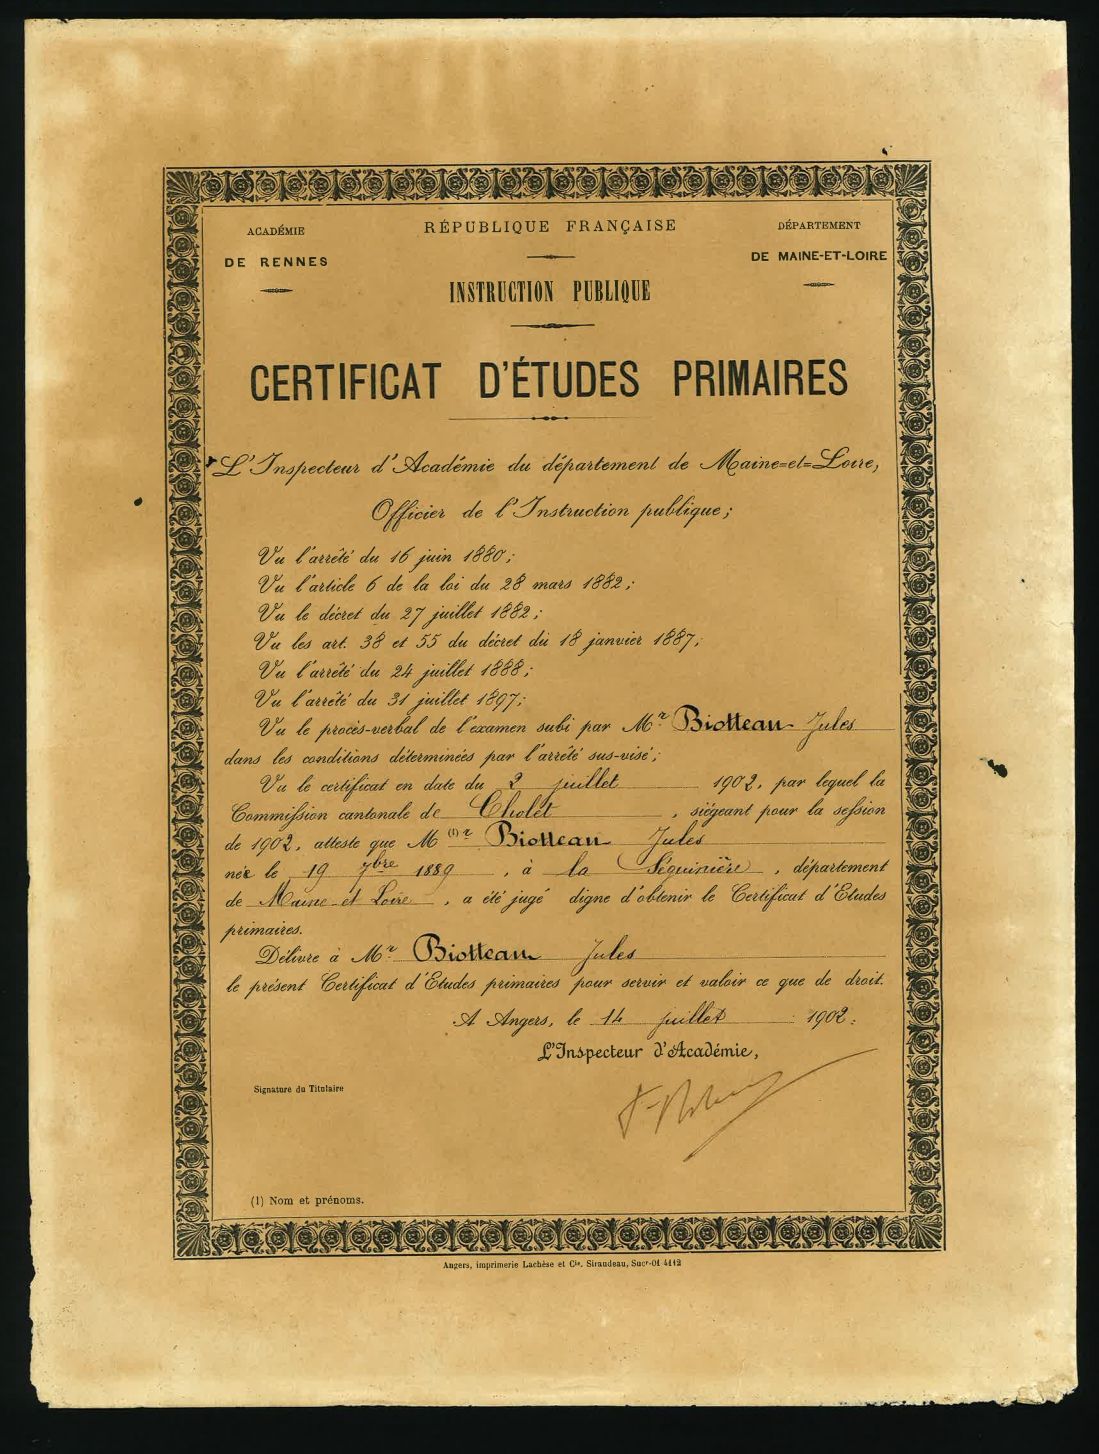 ACADÉMIE
DE RENNES
RÉPUBLIQUE FRANÇAISE
INSTRUCTION PUBLIQUE
DÉPARTEMENT
DE MAINE-ET-LOIRE
CERTIFICAT D'ÉTUDES PRIMAIRES
L'Inspecteur d'Académie du département de Maine=et=Loire,
Officier de l'Instruction publique;
Vu l'arrêté du 16 juin 1880;
Vu l'article 6 de la loi du 28 mars 1882;
Vu le décret du 27 juillet 1882;
Vu les art. 38 et 55 du décret du 18 janvier 1887;
Vu l'arrêté du 24 juillet 1888;
Vu l'arrêté du 31 juillet 1897;
Vu le procès-verbal de l'examen subi par Mr Biotteau Jules
dans les conditions déterminées par l'arrêté sus-visé;
Vu le certificat en date du 2 juillet 1902, par lequel la
Commission cantonale de Cholet, siégeant pour la session
de 1902, atteste que M(1)r Biotteau Jules
née le 19 7bre 1889, à la Séguinière, département
de Maine et Loire, a été jugé digne d'obtenir le Certificat d'Etudes
primaires.
Délivré à Mr Biotteau Jules
le présent Certificat d'Etudes primaires pour servir et valoir ce que de droit.
A Angers, le 14 juillet 1902.
L'Inspecteur d'Académie,
Signature du Titulaire
(1) Nom et prénoms.
Angers, imprimerie Lachèse et Cie, Siraudeau, Sucr-01 4112